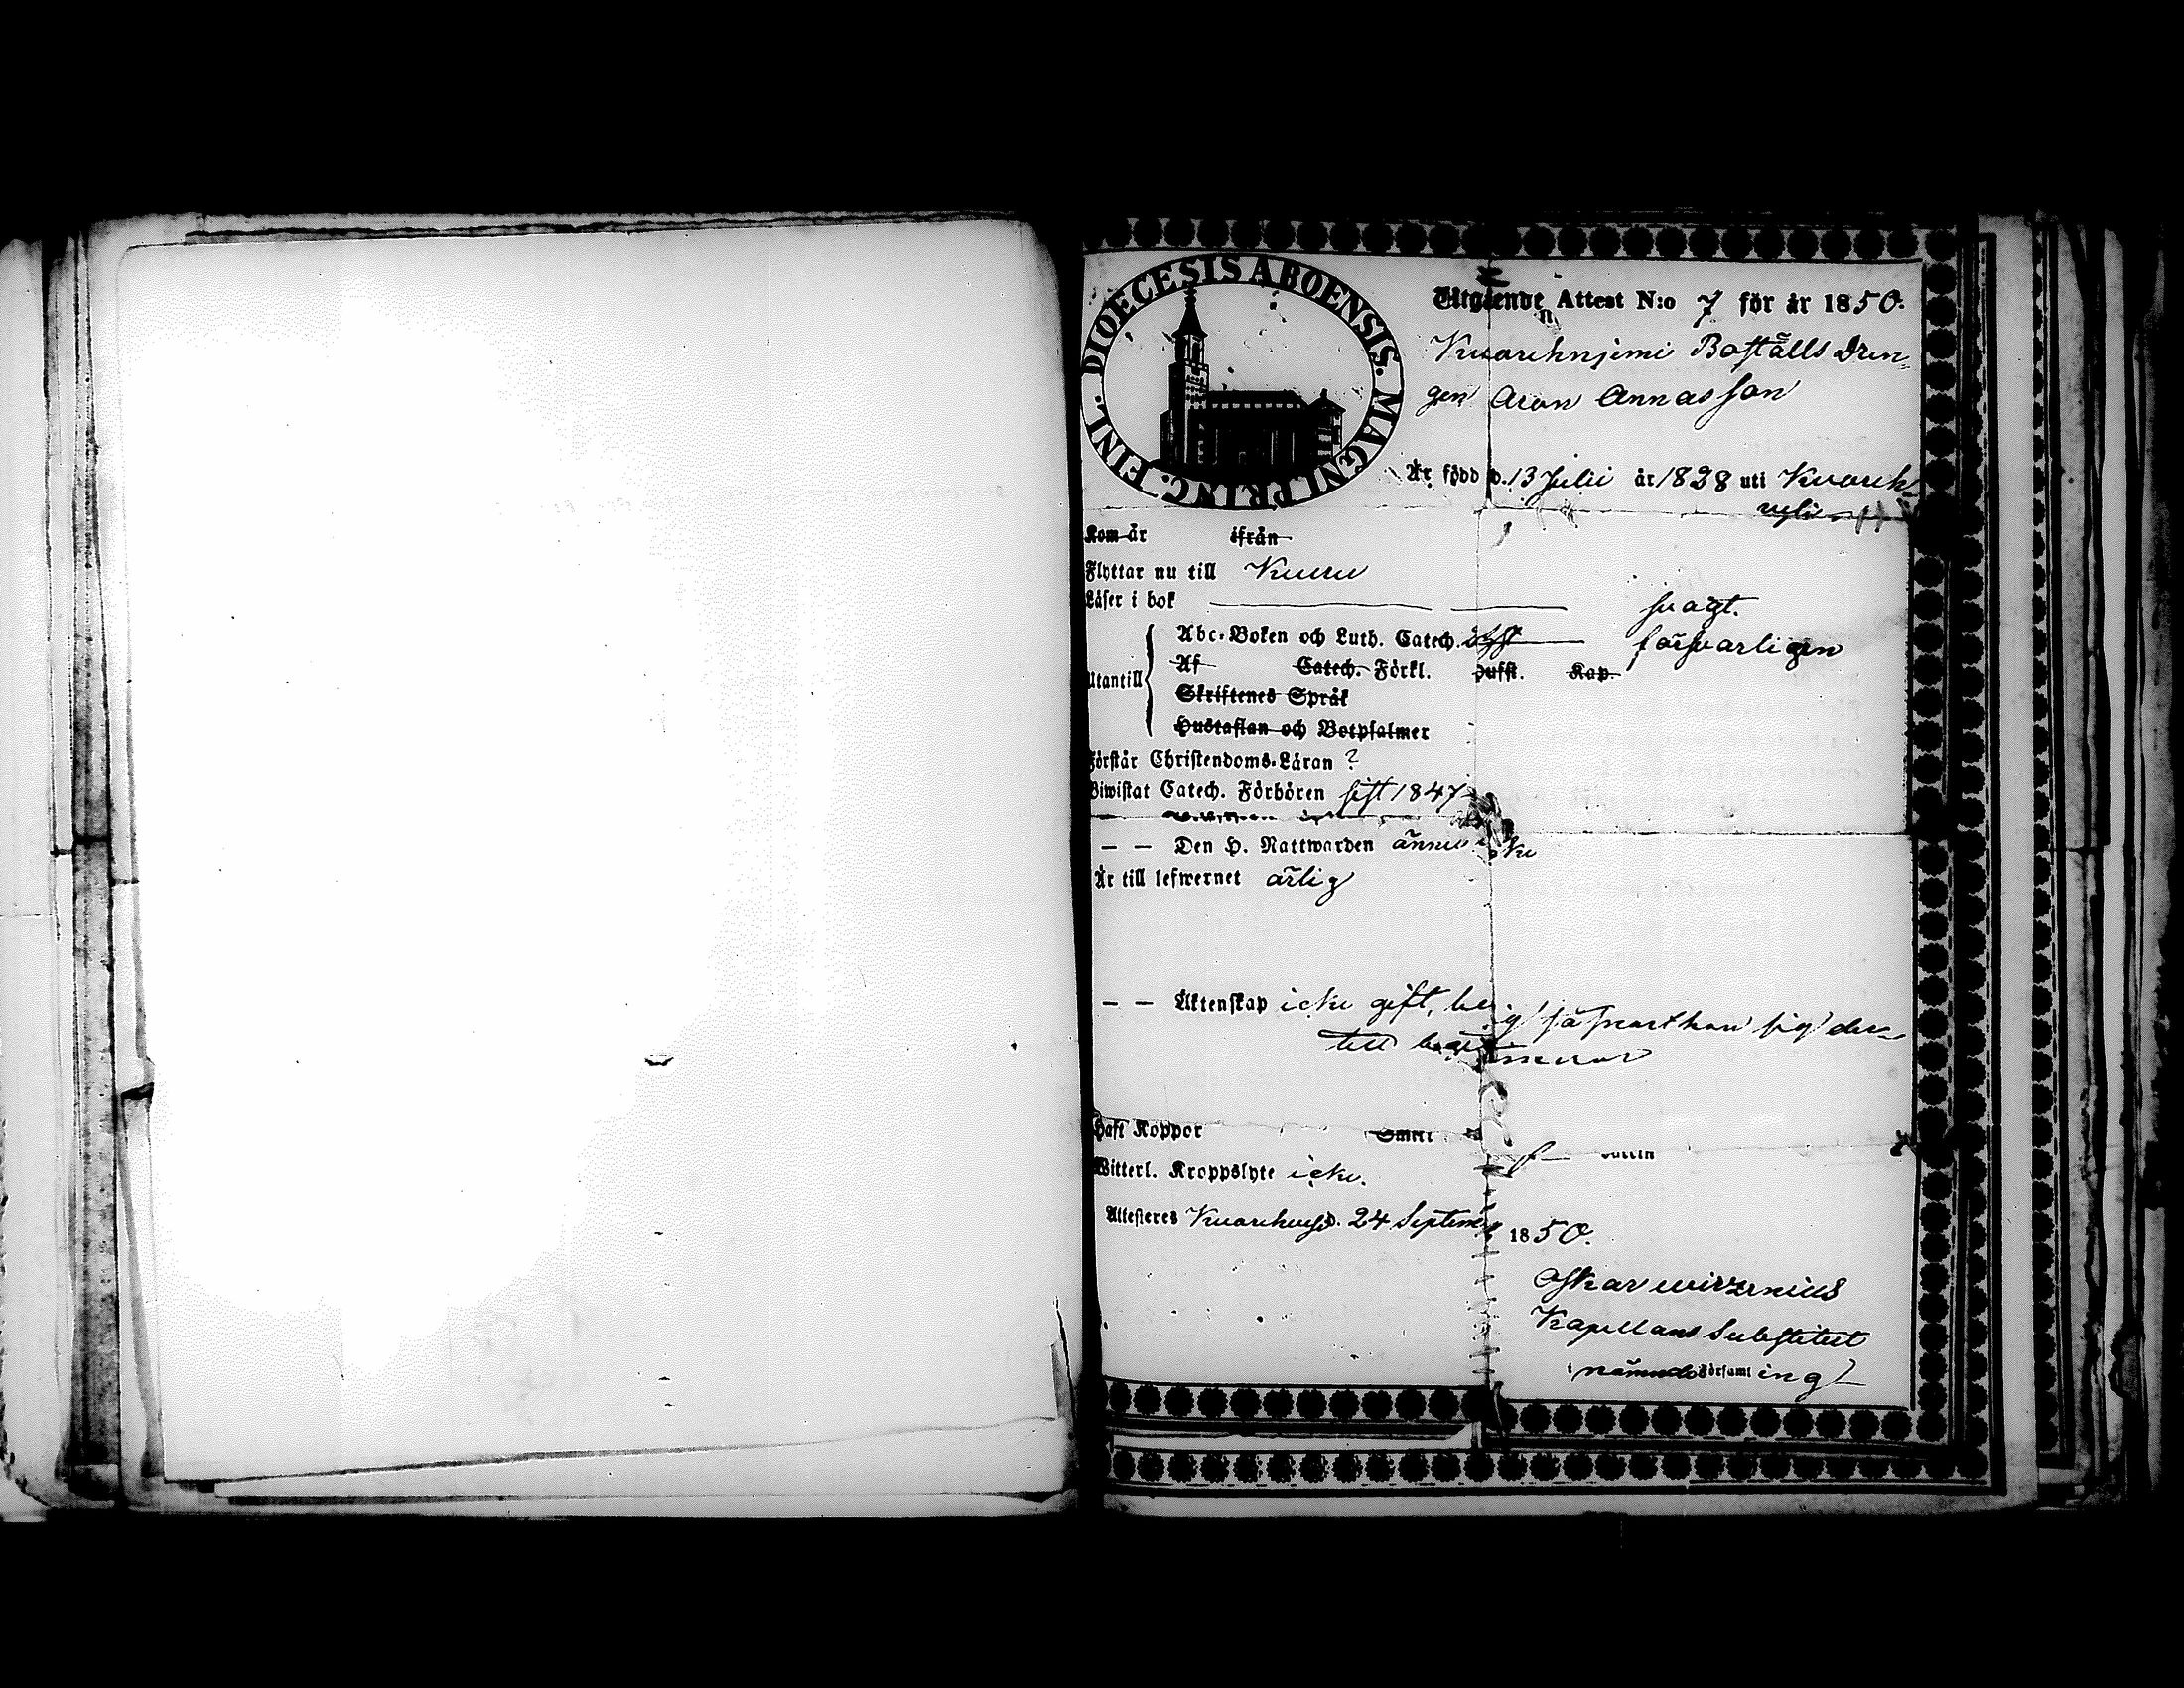 DIOECESIS ABOENSIS. MAGNI PRINC. FINL.
Utgående Attest N:o 7 för år 1850.
Boställs Drän-
gen Aron Annasson
Är född d. 13 Julii år 1828 uti
Kom år ifrån
Flyttar nu till Kuru
Läser i bok svagt.
Utantill
Abc-Boken och Luth. Catech. försvarligen
Af Catech. Förkl. Hufst. Kap.
Skriftenes Språk
Hustaflan och Botpsalmer
Förstår Christendoms-Läran ?
Biwistat Catech. Förhören sist 1847
— — Den H. Nattwarden ännu icke
Är till lefwernet ärlig
— — Äktenskap icke gift, ledig så snart han sig der-
till
Haft Koppor
Witterl. Kroppslyte icke.
Attesteras d. 24 Septem 1850.
Oskar Wirzenius
Kapellans Substitut
i nämnde församling